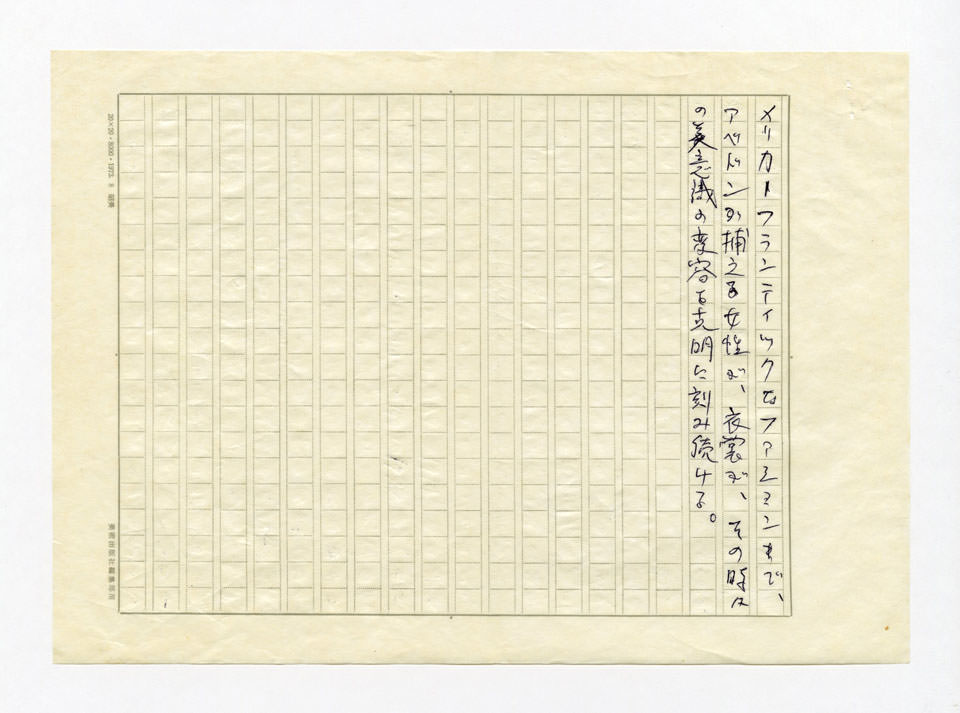 メリカトフランティックなファションまで、
アベドンが捕える女性が、衣裳が、その時代
の美意識の変容を克明に刻み続ける。
20×20・8000・1973.